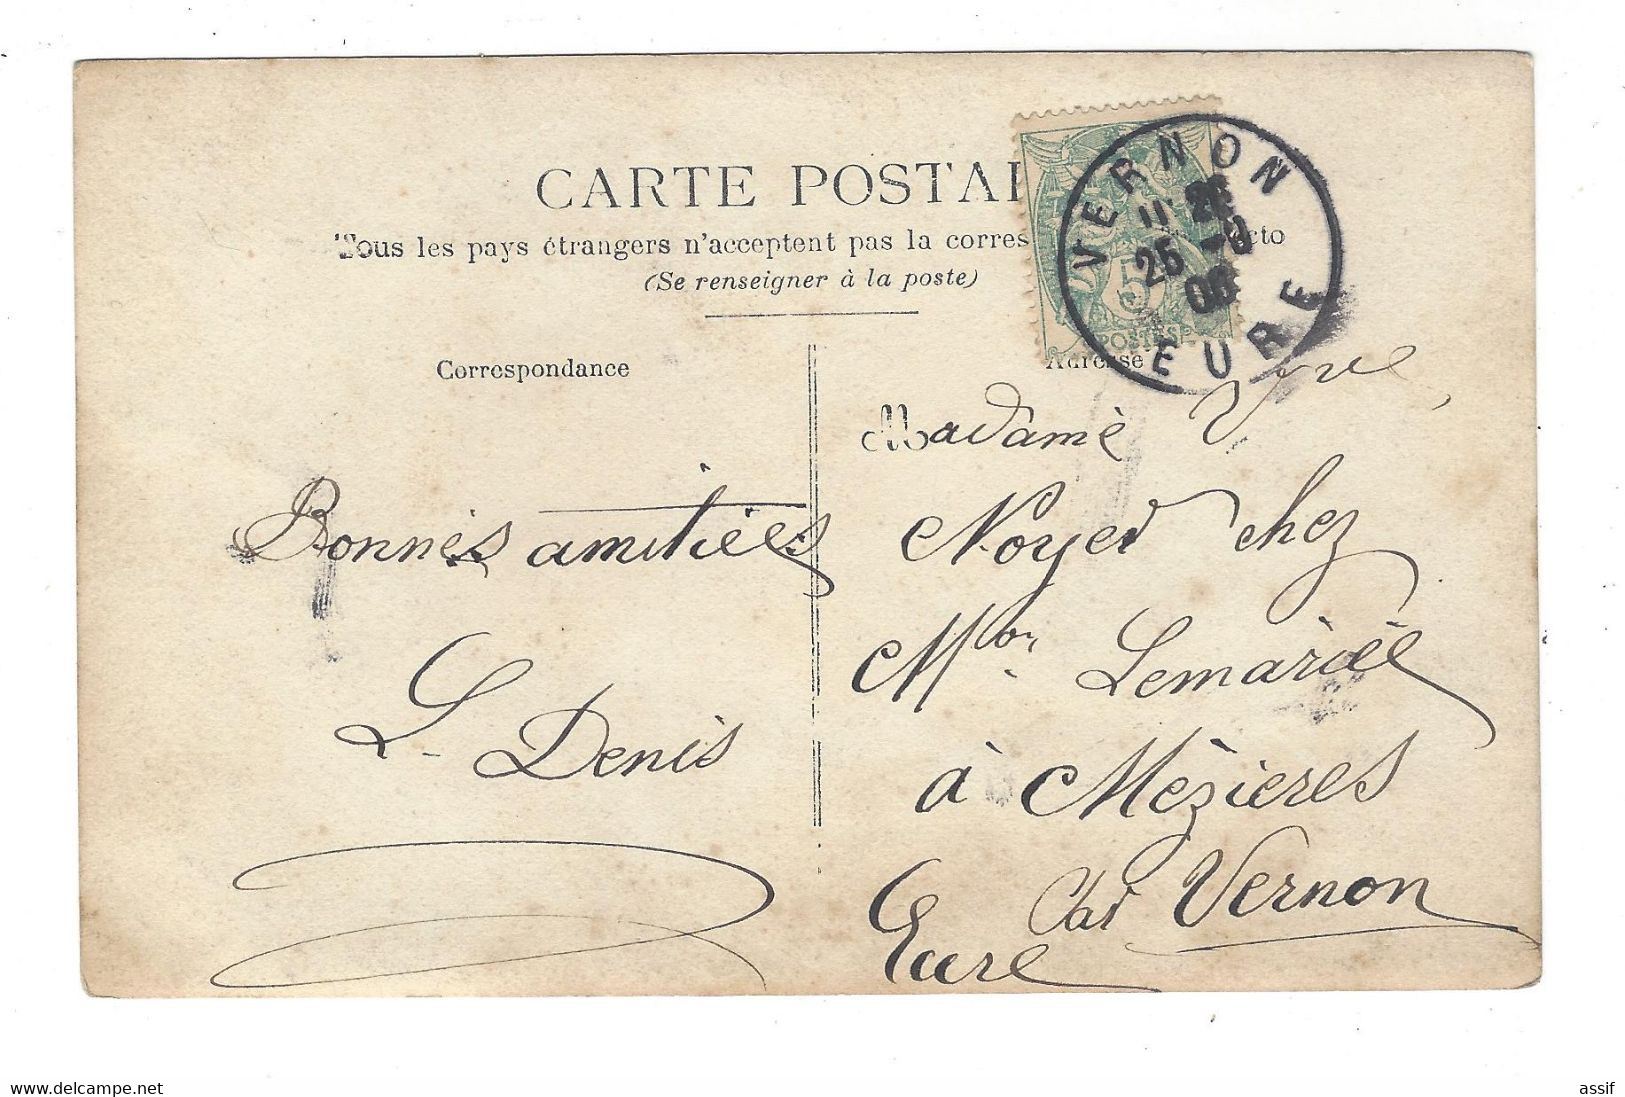 CARTE POSTAL
Tous les pays étrangers n'acceptent pas la corres cto
(Se renseigner à la poste)
VERNON
25
EURE
5
POSTES
Correspondance
Adresse
Bonnes amitiées
L. Denis
Madame Vve
Noyer chez
Mr Lemariée
à Mézières
Par Vernon
Eure
www.delcampe.net
assif